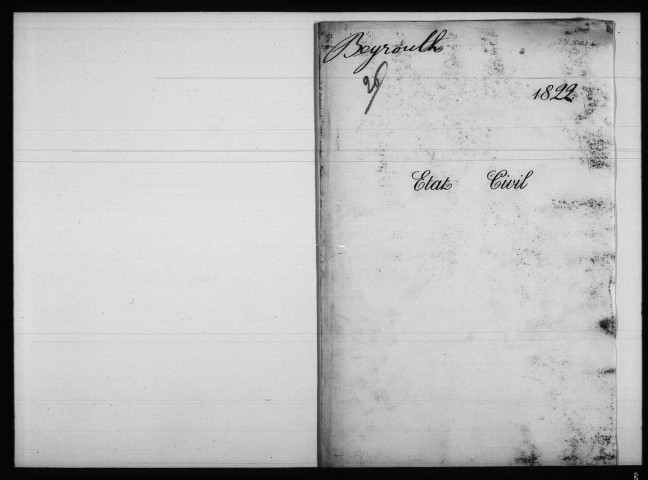 Beyrouth
1822
Etat Civil